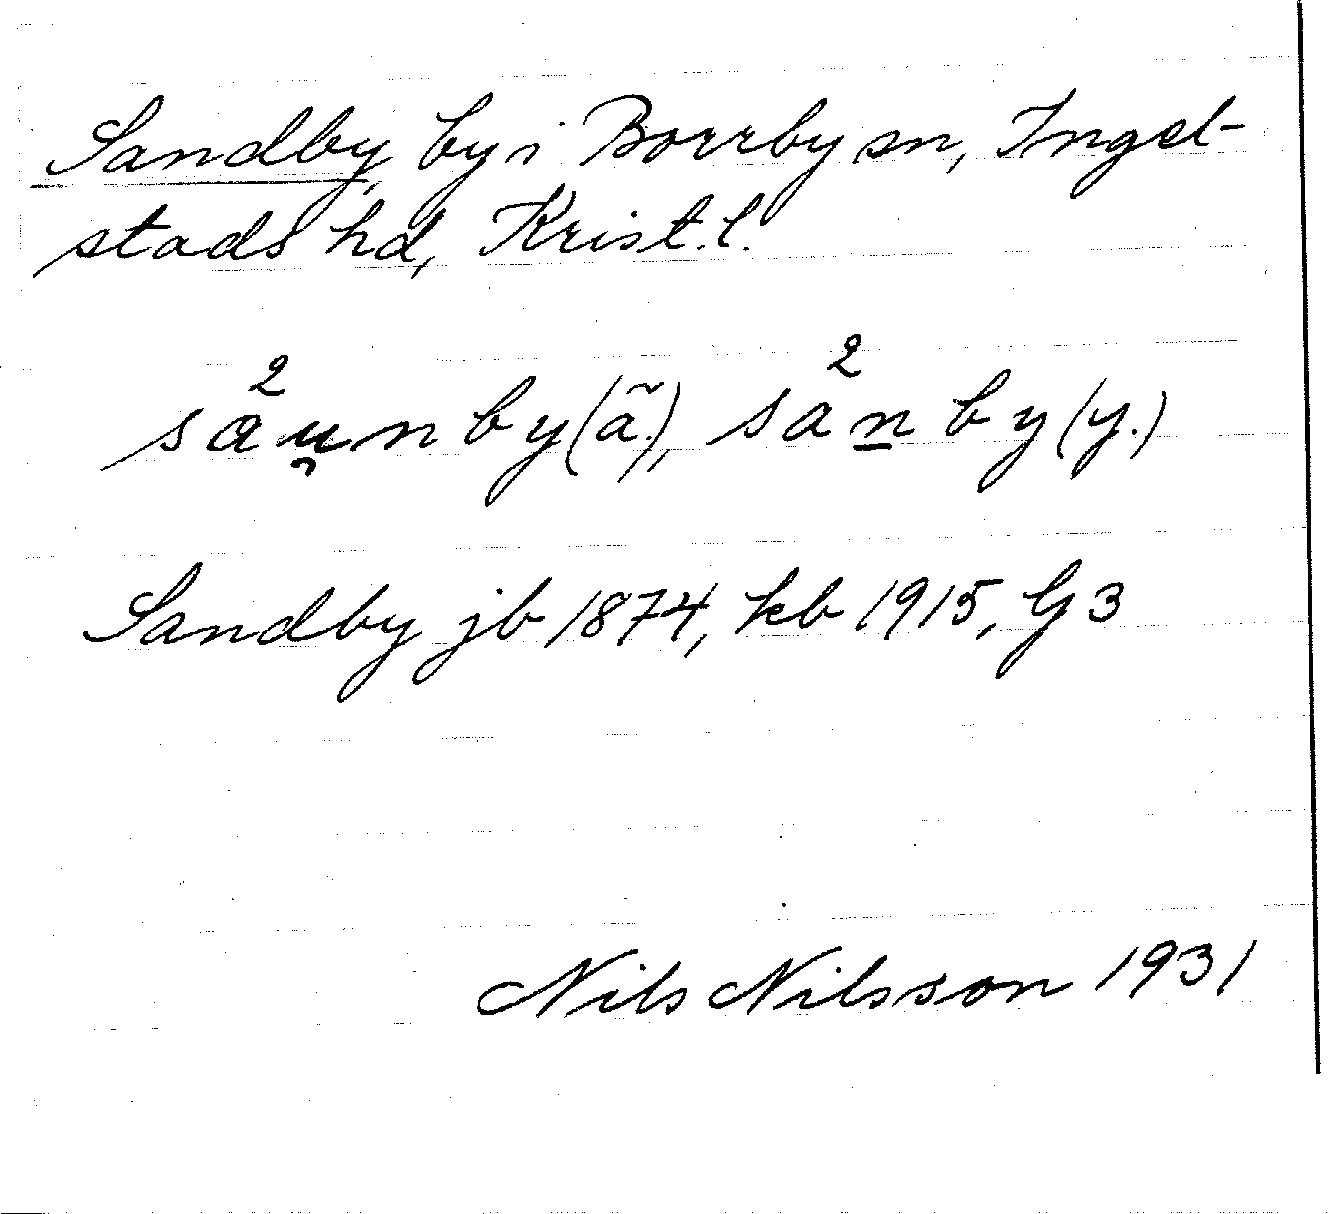 Sandby, by i Borrby sn, Ingel-
stads hd, Krist. l.
sa²u̯nby (ã.), sa²n̲by (y.)
Sandby jb 1874, kb 1915, G 3
Nils Nilsson 1931